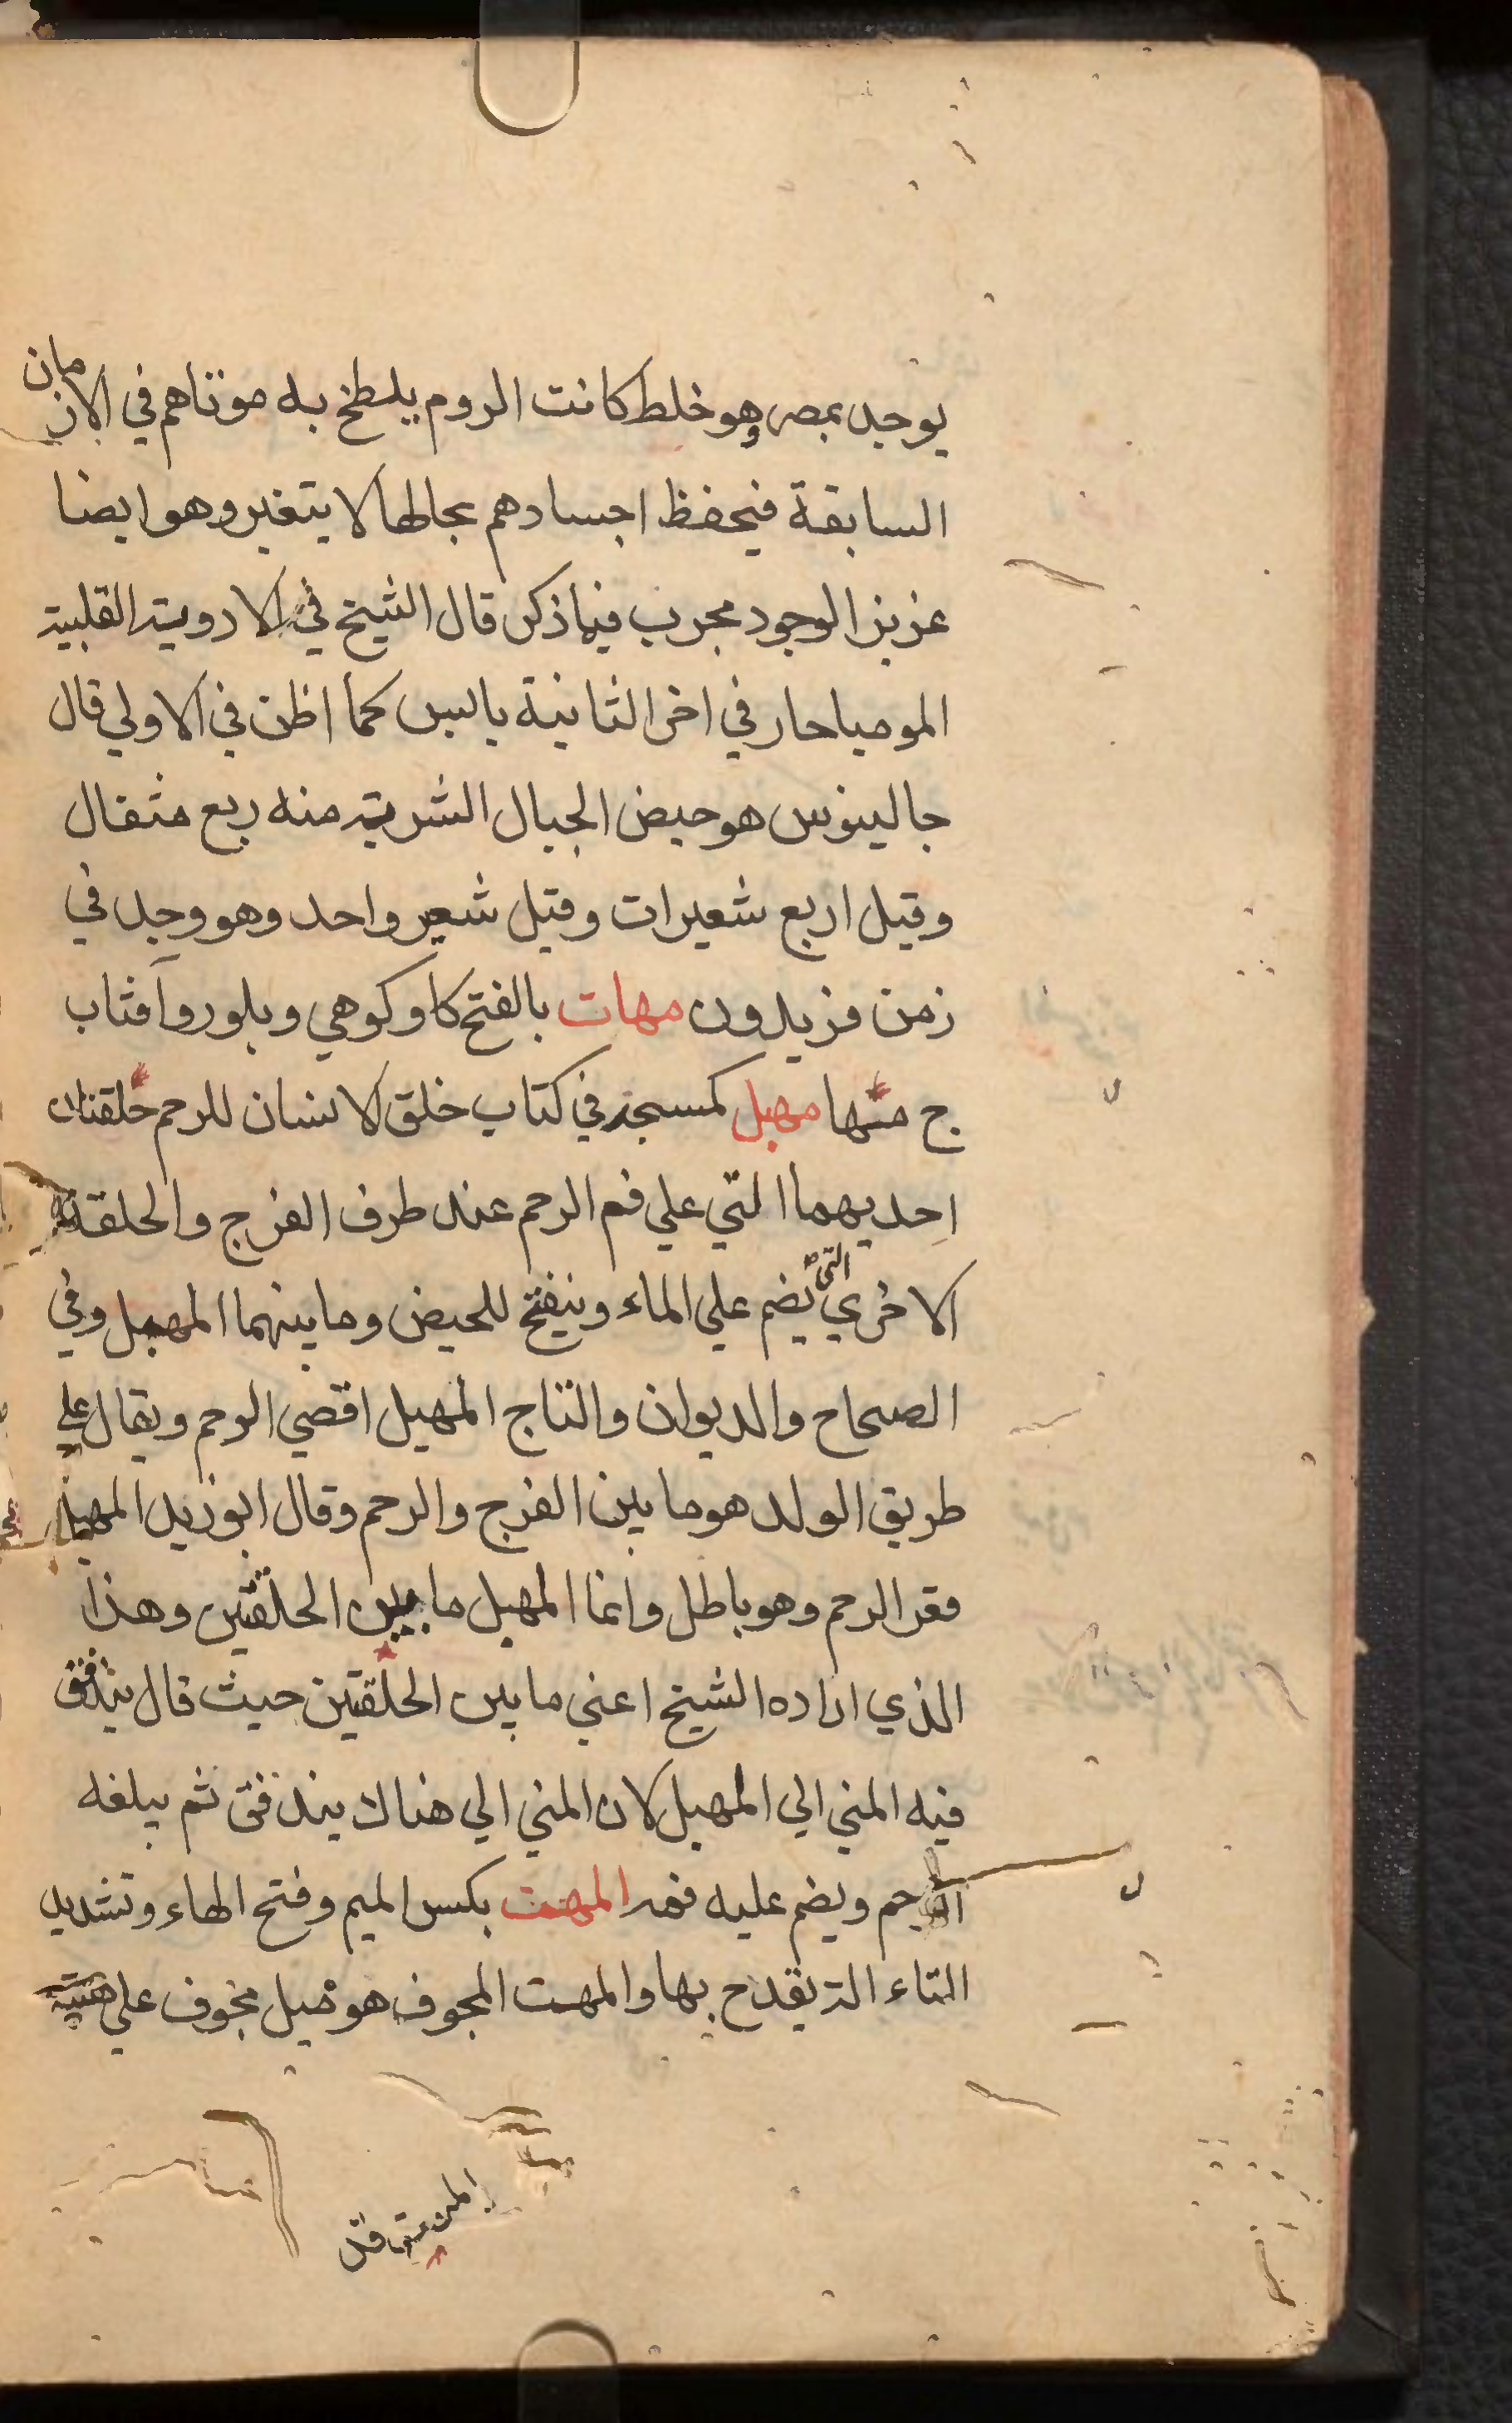 يوجد بمصر وهو خلط كانت الروم يلطخ به موتاهم في الازمان
السابقة فيحفظ اجسادهم بحالها لا يتغير وهو ايضا
عزيز الوجود مجرب فيما ذكر قال الشيخ في الادوية القلبية
الموميا حار في اخر الثانية يابس كما اظن في الاولي قال
جالينوس هو حيض الجبال الشربة منه ربع مثقال
وقيل اربع شعيرات وقيل شعير واحد وهو وجد في
زمن فريدون مهات بالفتح كاو كوهي وبلور وآفتاب
ج منها مهبل كمسجد في كتاب خلق الانسان للرحم حلقتان
احديهما التي علي فم الرحم عند طرف الفرج والحلقة
الاخري التي يضم علي الماء وينفتح للحيض وما بينهما المهبل وفي
الصحاح والديوان والتاج المهبل اقصي الرحم ويقال علي
طريق الولد هو ما بين الفرج والرحم وقال ابوزيد المهبل
فقر الرحم وهو باطل وانما المهبل ما بين الحلقتين وهذا
الذي اراده الشيخ اعني ما بين الحلقتين حيث قال يندفق
فيه المني الي المهبل لان المني الي هناك يندفق ثم يبلغه
الرحم ويضم عليه فمه المهت بكسر الميم وفتح الهاء وتشديد
التاء التي يقدح بها والمهت المجوف هو ميل مجوف علي